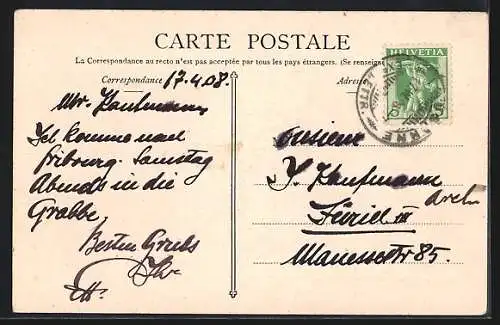 CARTE POSTALE
La Correspondance au recto n'est pas acceptée par tous les pays étrangers. (Se renseigner
Correspondance
17.4.08.
Adresse
HELVETIA
Kaufmann,
Ich komme nach
Fribourg. Samstag
Abends in die
Grabbe,
Besten Gruss
Monsieur
Kaufmann
Arch
Zürich III
Manessestr 85.